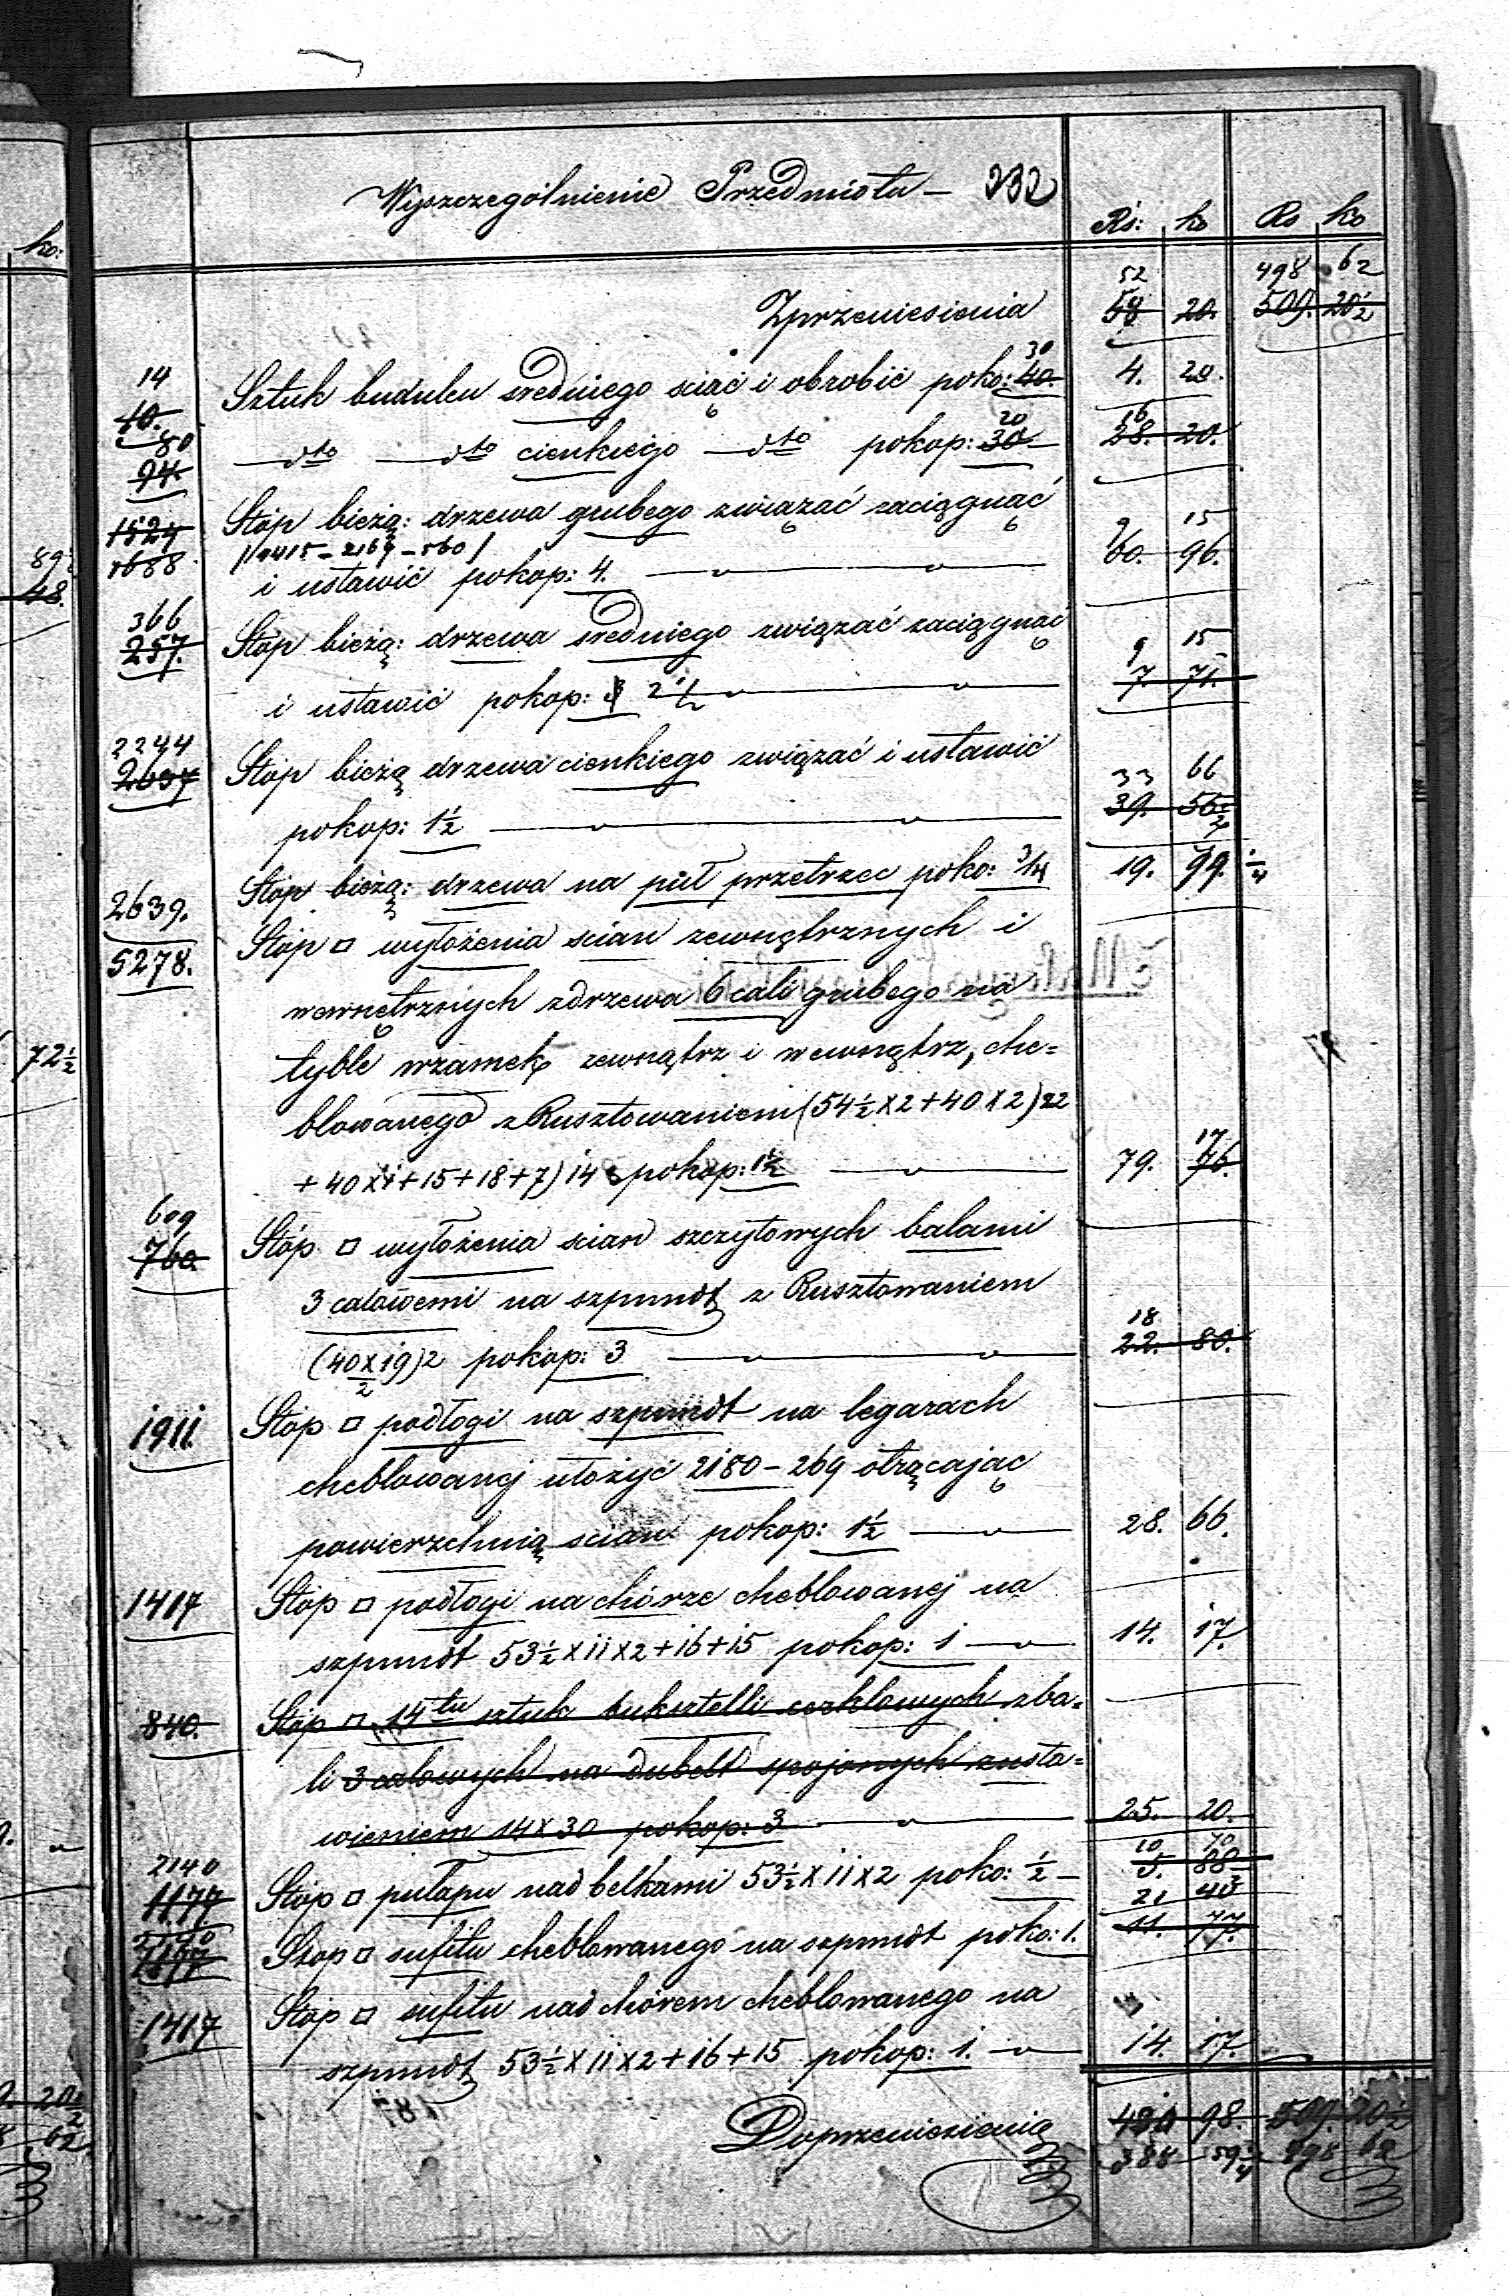 Wyszczególnienie Przedmiotu — 232
ko:
Rs: ko Rs ko
52 498 62
Zprzeniesienia 58 20. 509. 20½
14 30
40. Sztuk budulcu sredniego sciąć i obrobić poko: 40. 4. 20.
80 20 16
94 dto dto cienkiego dto pokop: 30 28. 20.
1524 Stóp bieżą: drzewa grubego związać zaciągnąć
1688 i ustawić pokop: 4. 60. 96.
366 9 15
257. Stóp bieżą: drzewa sredniego związać zaciągnąć
i ustawić pokop: 3 2½ 7. 71.
2244
2637 Stóp bieżą drzewa cienkiego związać i ustawić
33 66
pokop: 1½ 39. 56½
2639. Stóp bieżą: drzewa na pół przetrzec poko: ¾ 19. 79. ¼
5278. Stóp □ wyłożenia scian zewnętrznych i
wewnętrznych zdrzewa 6 cali grubego na
tyble wzamek zewnątrz i wewnątrz, che=
72½
blowanego z Rusztowaniem (54½ x 2 + 40 x 2) 22
17
+ 40 x ii + 15 + 18 + 7) 14 pokop: 1½ 79. 76.
609
760. Stóp □ wyłożenia scian szczytowych balami
3 calowemi na szpundt z Rusztowaniem
18
(40 x 19)2 pokop: 3 22. 80.
2
1911. Stóp □ podłogi na szpundt na legarach
cheblowanej ułożyć 2180 – 269 otrącając
powierzchnią scian pokop: 1½ 28. 66.
1417 Stóp □ podłogi na chórze cheblowanej na
szpundt 53½ x ii x 2 + 16 + 15 pokop: 1 14. 17.
840. Stóp □ 14tu sztuk buksztelli zba=
li 3 calowych na dubelt spojonych zusta=
wieniem 14 x 30 pokop: 3 25. 20.
2140 10 70
1177 Stóp □ pułapu nad belkami 53½ x ii x 2 poko: ½ 5. 88½
2140 21 40
Stóp □ sufitu cheblowanego na szpundt poko: 1. 11. 77.
1417 Stóp □ sufitu nad chórem cheblowanego na
szpundt 53½ x ii x 2 + 16 + 15 pokop: 1. 14. 17.
Doprzeniesienia 98. 509. 20½
388 59¼ 498 62